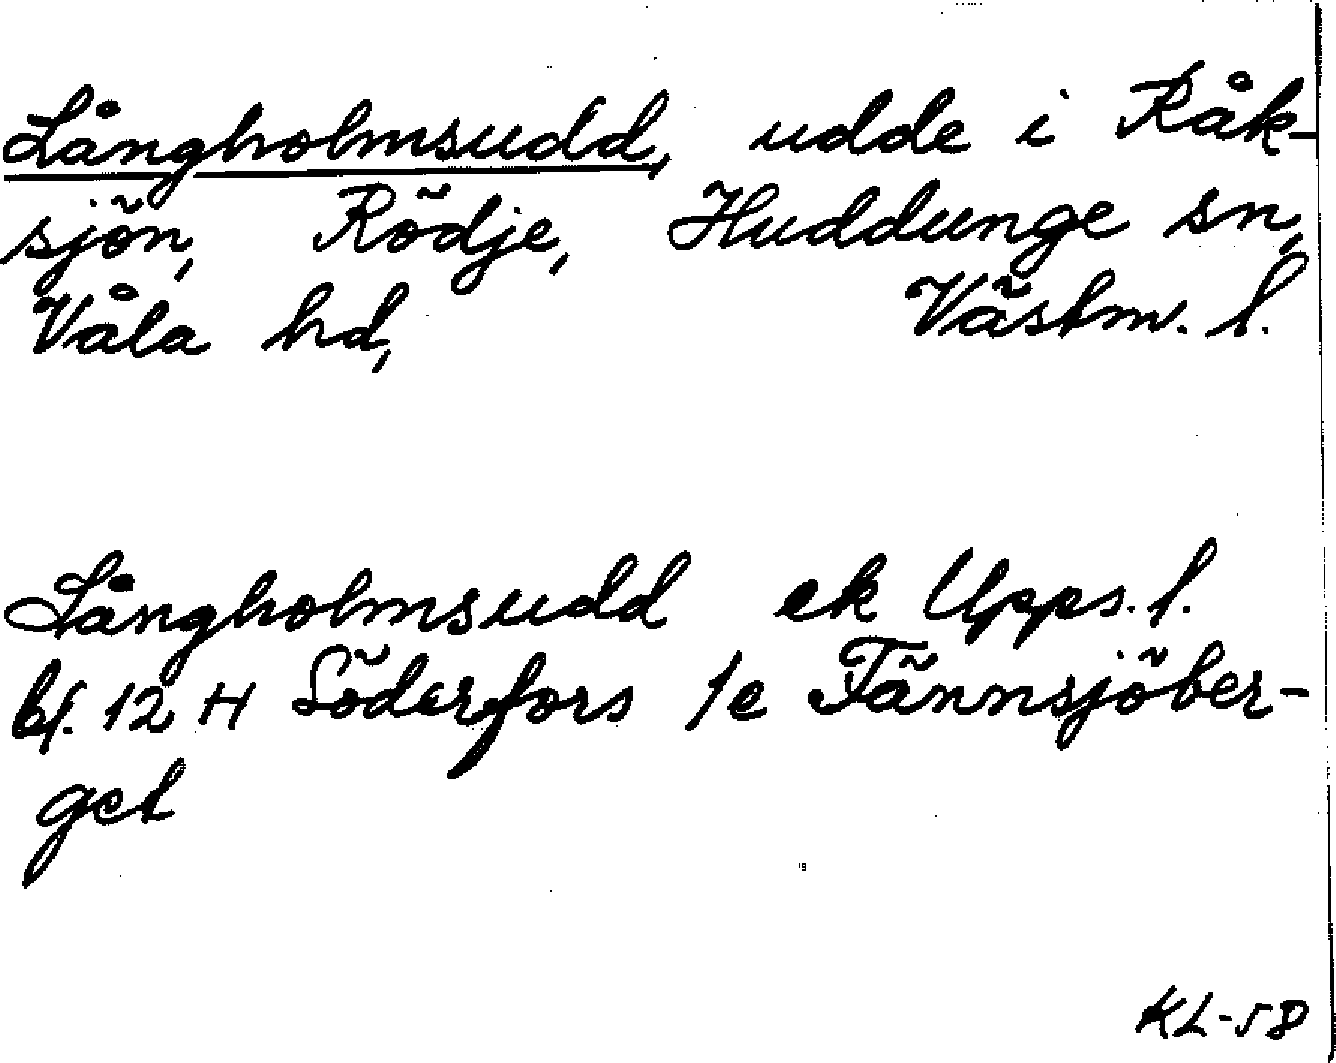 Långholmsudd, udde i Råk-
sjön, Rödje, Huddunge sn,
Våla hd, Västm. l.
Långholmsudd ek Upps. l.
bl. 12 H Söderfors 1e Tännsjöber-
get
KL-58